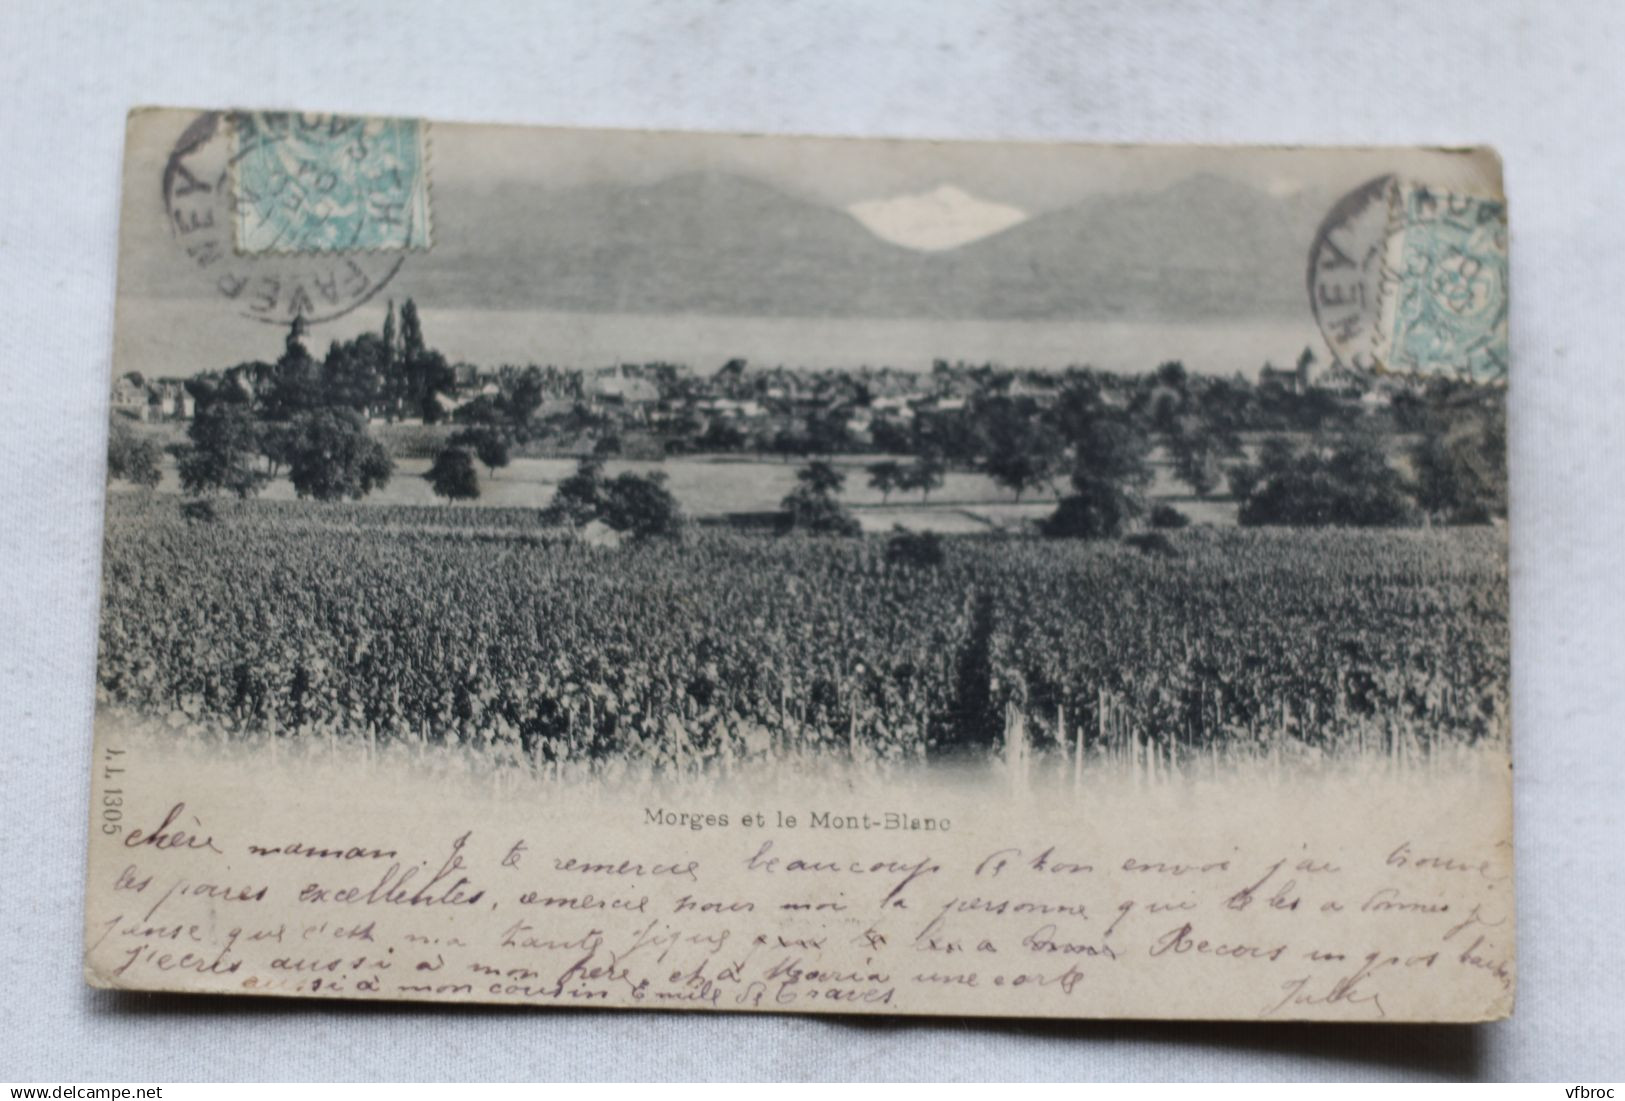 FAVERNEY
Hte SAONE
NEY
Morges et le Mont-Blanc
J.J. 1305
chère maman. Je te remercie beaucoup de ton envoi j'ai trouvé
les poires excellentes, remercie pour moi la personne qui te les a donnés je
pense que c'est ma tante a donné Recois un gros
j'ecris aussi à mon père et à Maria une carte
aussi à mon cousin Emile de Traves.
delcampe.net
vfbroc